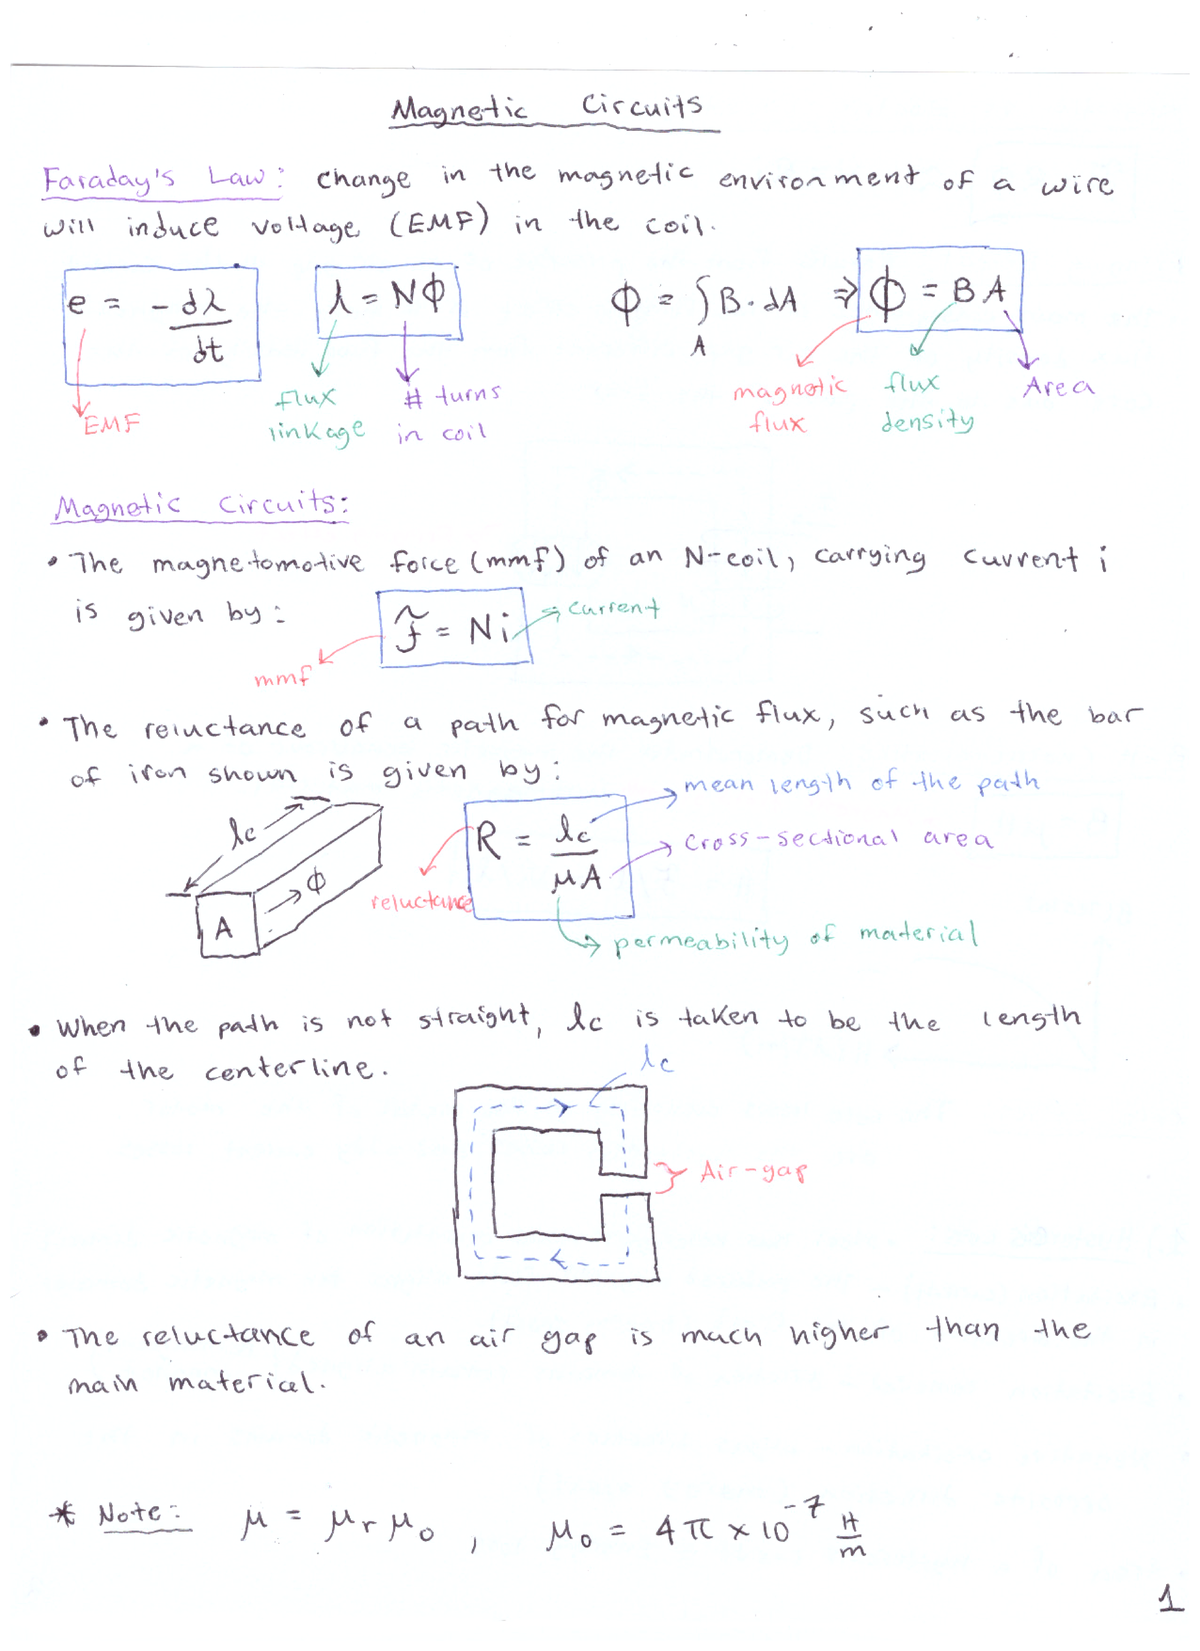 Magnetic Circuits
Faraday's Law: Change in the magnetic environment of a wire
will induce voltage (EMF) in the coil.
e = -dλ/dt
λ = Nϕ
ϕ = ∫_A B·dA ⇒ ϕ = BA
EMF
flux linkage
# turns in coil
magnetic flux
flux density
Area
Magnetic Circuits:
• The magnetomotive force (mmf) of an N-coil, carrying current i
is given by: ℱ = Ni
current
mmf
• The reluctance of a path for magnetic flux, such as the bar
of iron shown is given by:
lc
ϕ
A
R = lc/μA
mean length of the path
cross-sectional area
reluctance
permeability of material
• When the path is not straight, lc is taken to be the length
of the centerline.
lc
Air-gap
• The reluctance of an air gap is much higher than the
main material.
* Note: μ = μr μ0 , μ0 = 4π × 10^-7 H/m
1